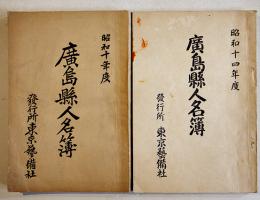 昭和十年度
廣島縣人名簿
發行所東京藝備社
昭和十四年度
廣島縣人名簿
發行所 東京藝備社